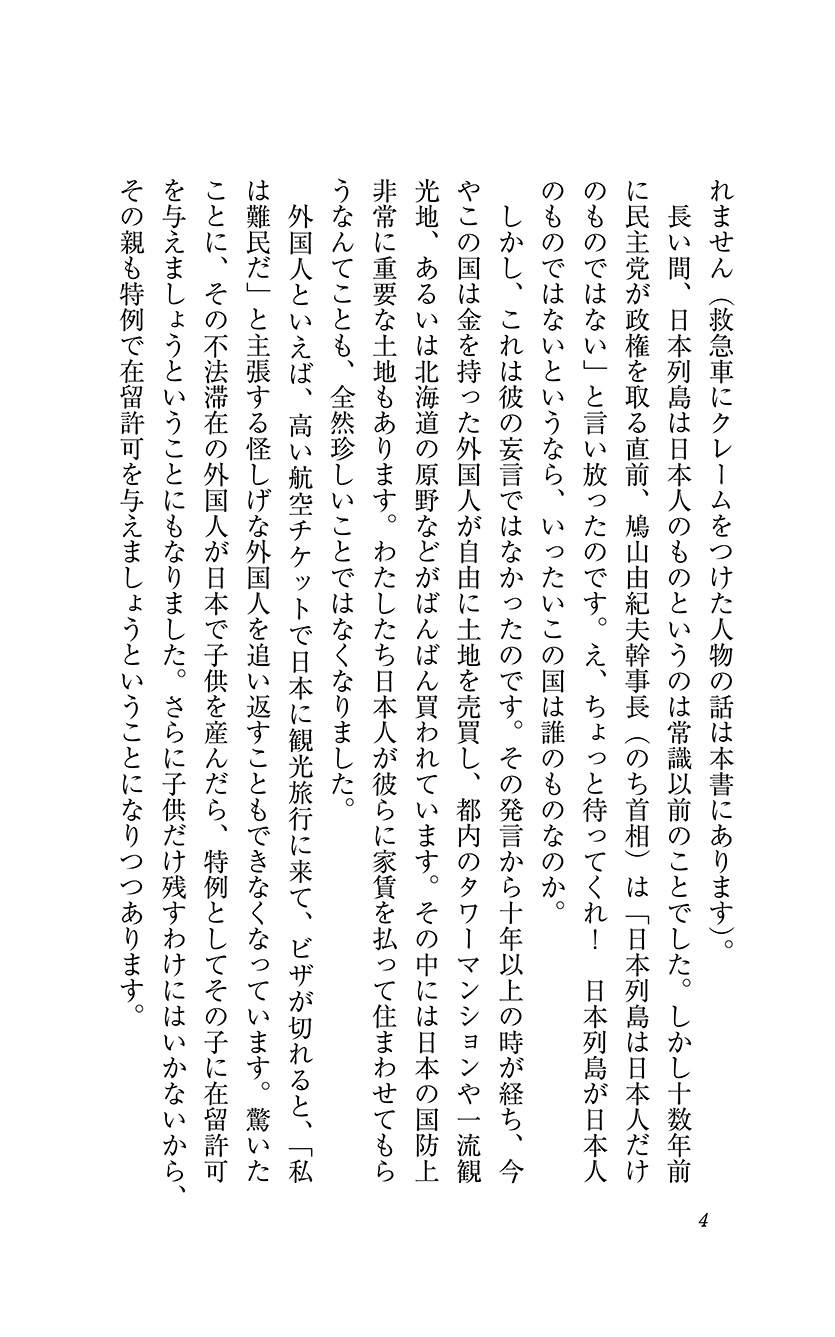 れません（救急車にクレームをつけた人物の話は本書にあります）。
長い間、日本列島は日本人のものというのは常識以前のことでした。しかし十数年前
に民主党が政権を取る直前、鳩山由紀夫幹事長（のち首相）は「日本列島は日本人だけ
のものではない」と言い放ったのです。え、ちょっと待ってくれ！　日本列島が日本人
のものではないというなら、いったいこの国は誰のものなのか。
しかし、これは彼の妄言ではなかったのです。その発言から十年以上の時が経ち、今
やこの国は金を持った外国人が自由に土地を売買し、都内のタワーマンションや一流観
光地、あるいは北海道の原野などがばんばん買われています。その中には日本の国防上
非常に重要な土地もあります。わたしたち日本人が彼らに家賃を払って住まわせてもら
うなんてことも、全然珍しいことではなくなりました。
外国人といえば、高い航空チケットで日本に観光旅行に来て、ビザが切れると、「私
は難民だ」と主張する怪しげな外国人を追い返すこともできなくなっています。驚いた
ことに、その不法滞在の外国人が日本で子供を産んだら、特例としてその子に在留許可
を与えましょうということにもなりました。さらに子供だけ残すわけにはいかないから、
その親も特例で在留許可を与えましょうということになりつつあります。
4